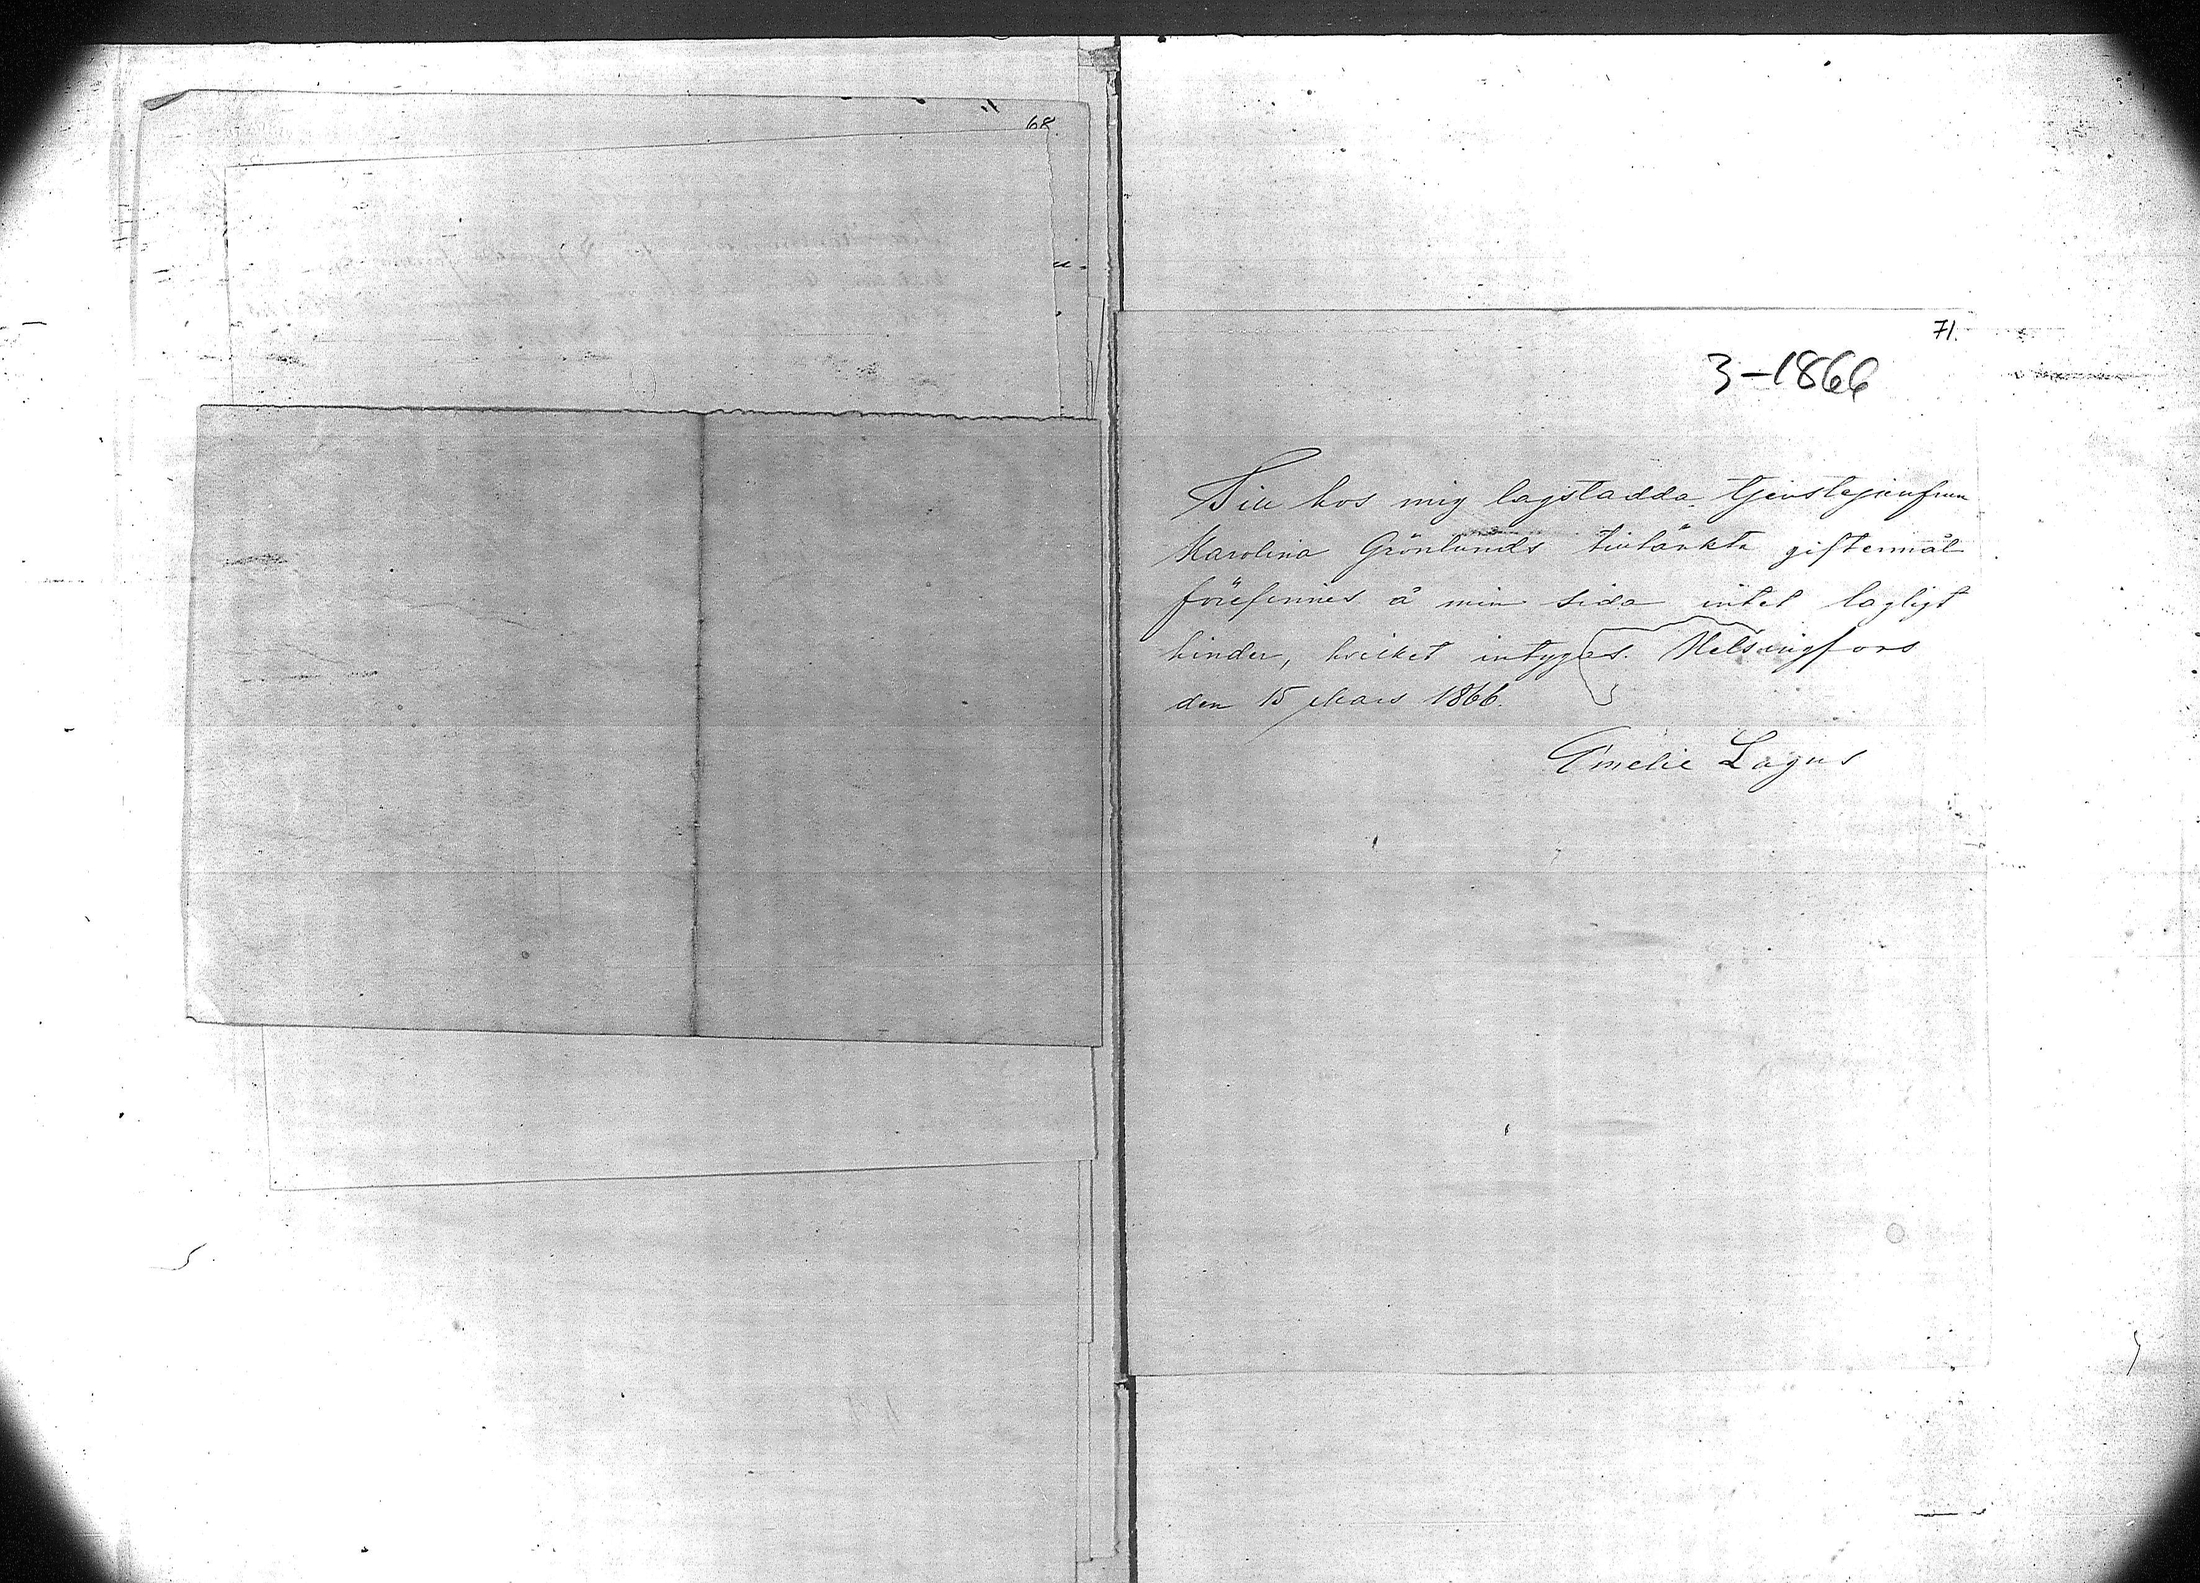 68.
71.
3-1866
Till hos mig lagstadda tjenstejunfrun
Karolina Grönlunds tiltänkta giftermål
förefinnes å min sida intet lagligt
hinder, hvilket intygas. Helsingfors
den 15 Mars 1866.
Emelie Lagus